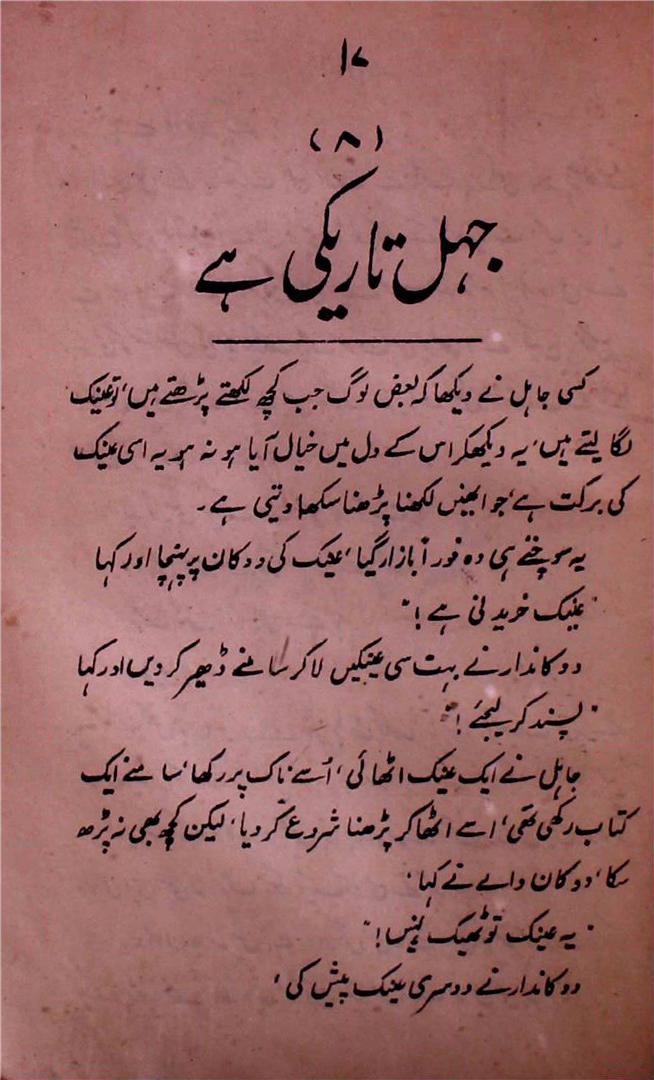 ۱۷
(۸)
جہل تاریکی ہے
کسی جاہل نے دیکھا کہ بعض لوگ جب کچھ لکھتے پڑھتے ہیں، تو عینک
لگا لیتے ہیں، یہ دیکھکر اس کے دل میں خیال آیا ہو نہ ہو یہ اسی عینک
کی برکت ہے، جو انہیں لکھنا پڑھنا سکھا دیتی ہے۔
یہ سوچتے ہی وہ فوراً بازار گیا، عینک کی دوکان پر پہنچا اور کہا
"عینک خریدنی ہے!"
دوکاندار نے بہت سی عینکیں لا کر سامنے ڈھیر کر دیں اور کہا
"پسند کر لیجئے!"
جاہل نے ایک عینک اٹھائی، اُسے ناک پر رکھا، سامنے ایک
کتاب رکھی تھی، اسے اٹھا کر پڑھنا شروع کر دیا، لیکن کچھ بھی نہ پڑھ
سکا، دوکان والے نے کہا،
"یہ عینک تو ٹھیک نہیں!"
دوکاندار نے دوسری عینک پیش کی،